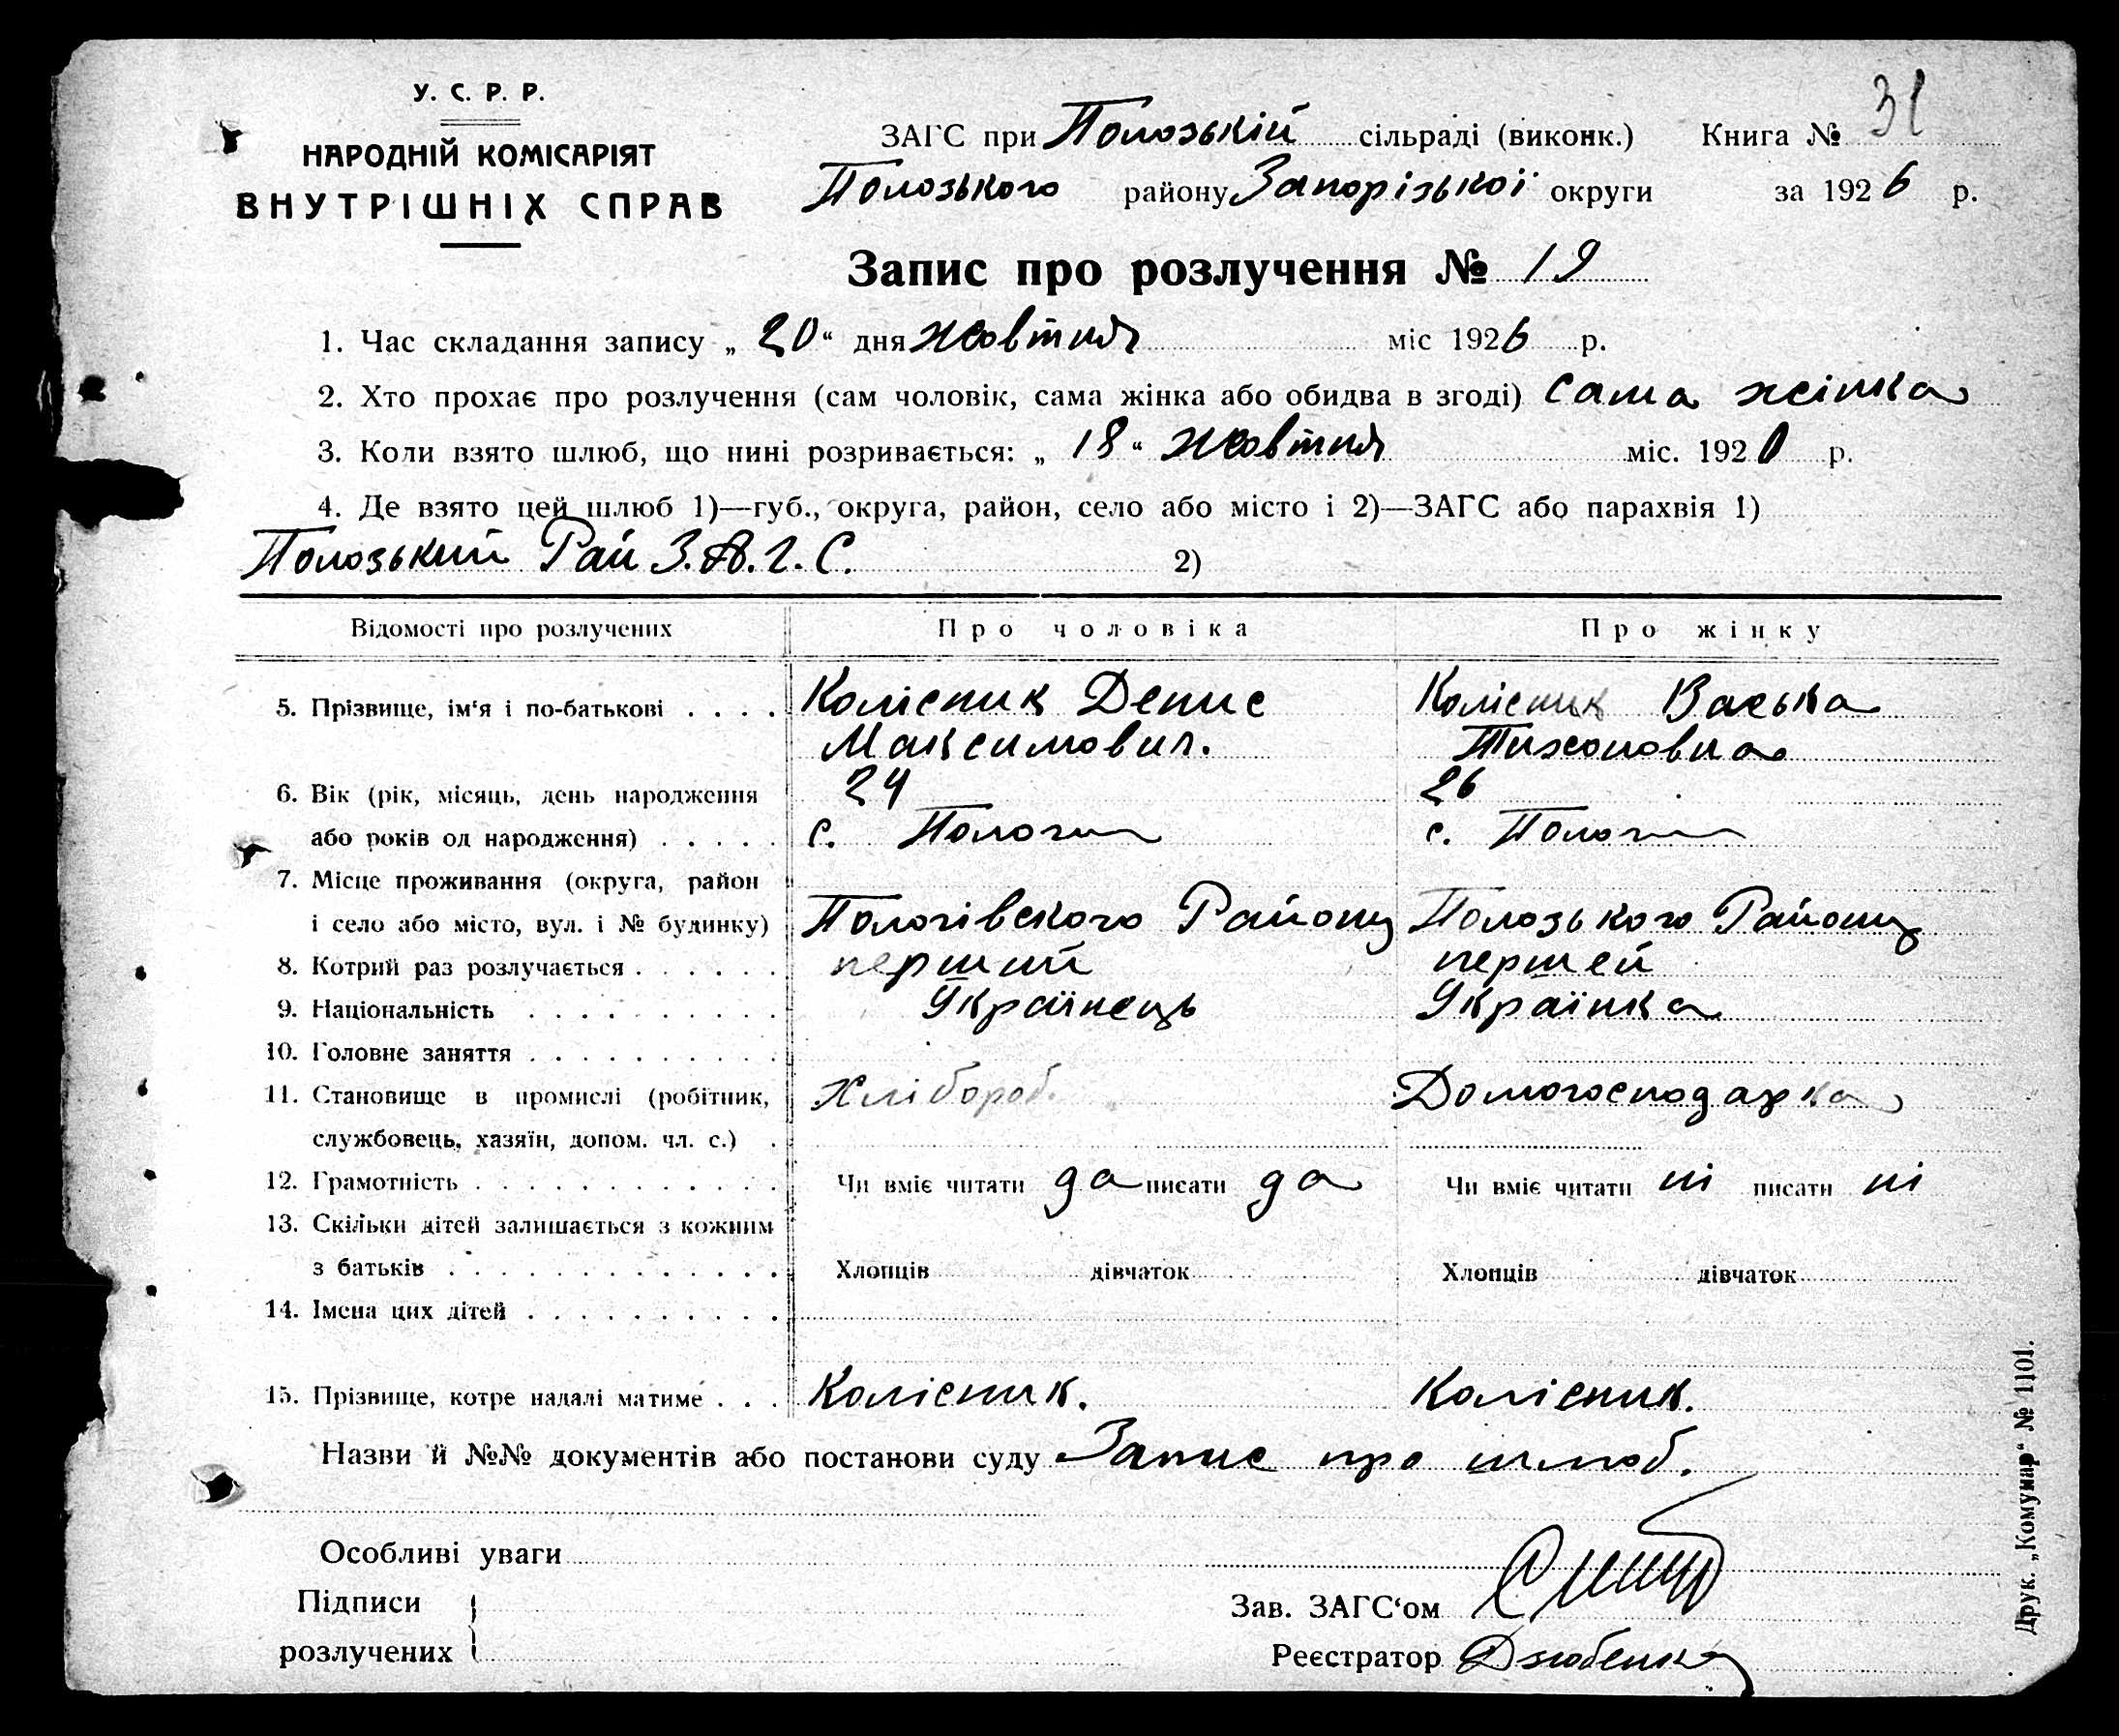 У. С. Р. Р.
НАРОДНІЙ КОМІСАРІЯТ
ВНУТРІШНІХ СПРАВ
ЗАГС при Полозькій сільраді (виконк.) Книга № 31
Полозького району Запорізької округи за 1926 р.
Запис про розлучення № 19
1. Час складання запису „ 20 “ дня жовтня міс 1926 р.
2. Хто прохає про розлучення (сам чоловік, сама жінка або обидва в згоді) сама жінка
3. Коли взято шлюб, що нині розривається: „ 18 “ жовтня міс. 1920 р.
4. Де взято цей шлюб 1)—губ., округа, район, село або місто і 2)—ЗАГС або парахвія 1)
Полозький Рай З.А.Г.С. 2)
Відомості про розлучених Про чоловіка Про жінку
5. Прізвище, ім‘я і по-батькові . . . . Колісник Денис Колісник Васька
Максимович. Тихоновна
6. Вік (рік, місяць, день народження 24 26
або років од народження) . . . . . с. Пологи с. Пологи
7. Місце проживання (округа, район
і село або місто, вул. і № будинку) Пологівского Району Полозького Району
8. Котрий раз розлучається . . . . . . перший першей
9. Національність . . . . . . . . . . Українець Українка
10. Головне заняття . . . . . . . . . .
11. Становище в промислі (робітник, Хлібороб. Домогосподарка
службовець, хазяїн, допом. чл. с.) .
12. Грамотність . . . . . . . . . . . . Чи вміє читати да писати да Чи вміє читати ні писати ні
13. Скільки дітей залишається з кожним
з батьків . . . . . . . . . . . . . Хлопців дівчаток Хлопців дівчаток
14. Імена цих дітей . . . . . . . . . .
15. Прізвище, котре надалі матиме . . . Колісник. Колісник.
Назви й №№ документів або постанови суду Запис про шлюб.
Особливі уваги
Підписи
розлучених
Зав. ЗАГС‘ом
Реєстратор Дзюбенко
Друк. „Комунар“ № 1101.